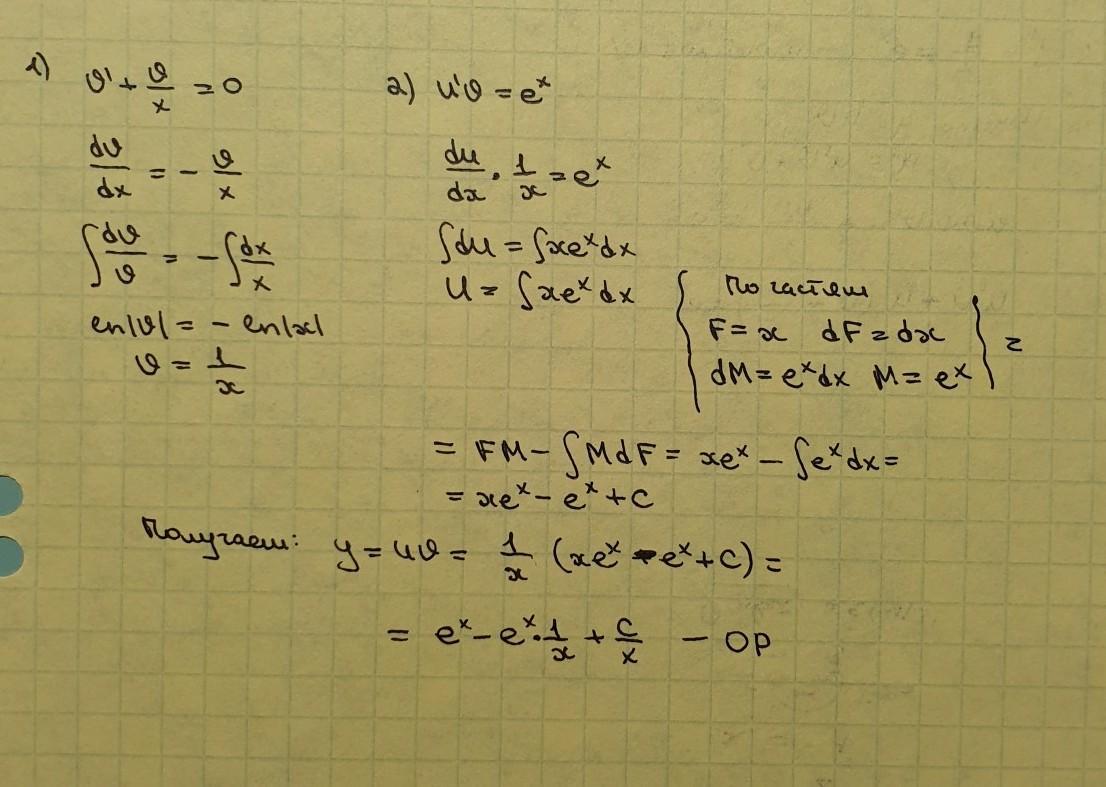 1) ϑ' + ϑ/x = 0
dϑ/dx = - ϑ/x
∫ dϑ/ϑ = - ∫ dx/x
ln|ϑ| = - ln|x|
ϑ = 1/x
2) u'ϑ = eˣ
du/dx · 1/x = eˣ
∫du = ∫xeˣdx
u = ∫xeˣdx
{ По частям
F = x dF = dx
dM = eˣdx M = eˣ } =
= FM - ∫MdF = xeˣ - ∫eˣdx =
= xeˣ - eˣ + C
Получаем: y = uϑ = 1/x (xeˣ - eˣ + C) =
= eˣ - eˣ · 1/x + C/x - ОР